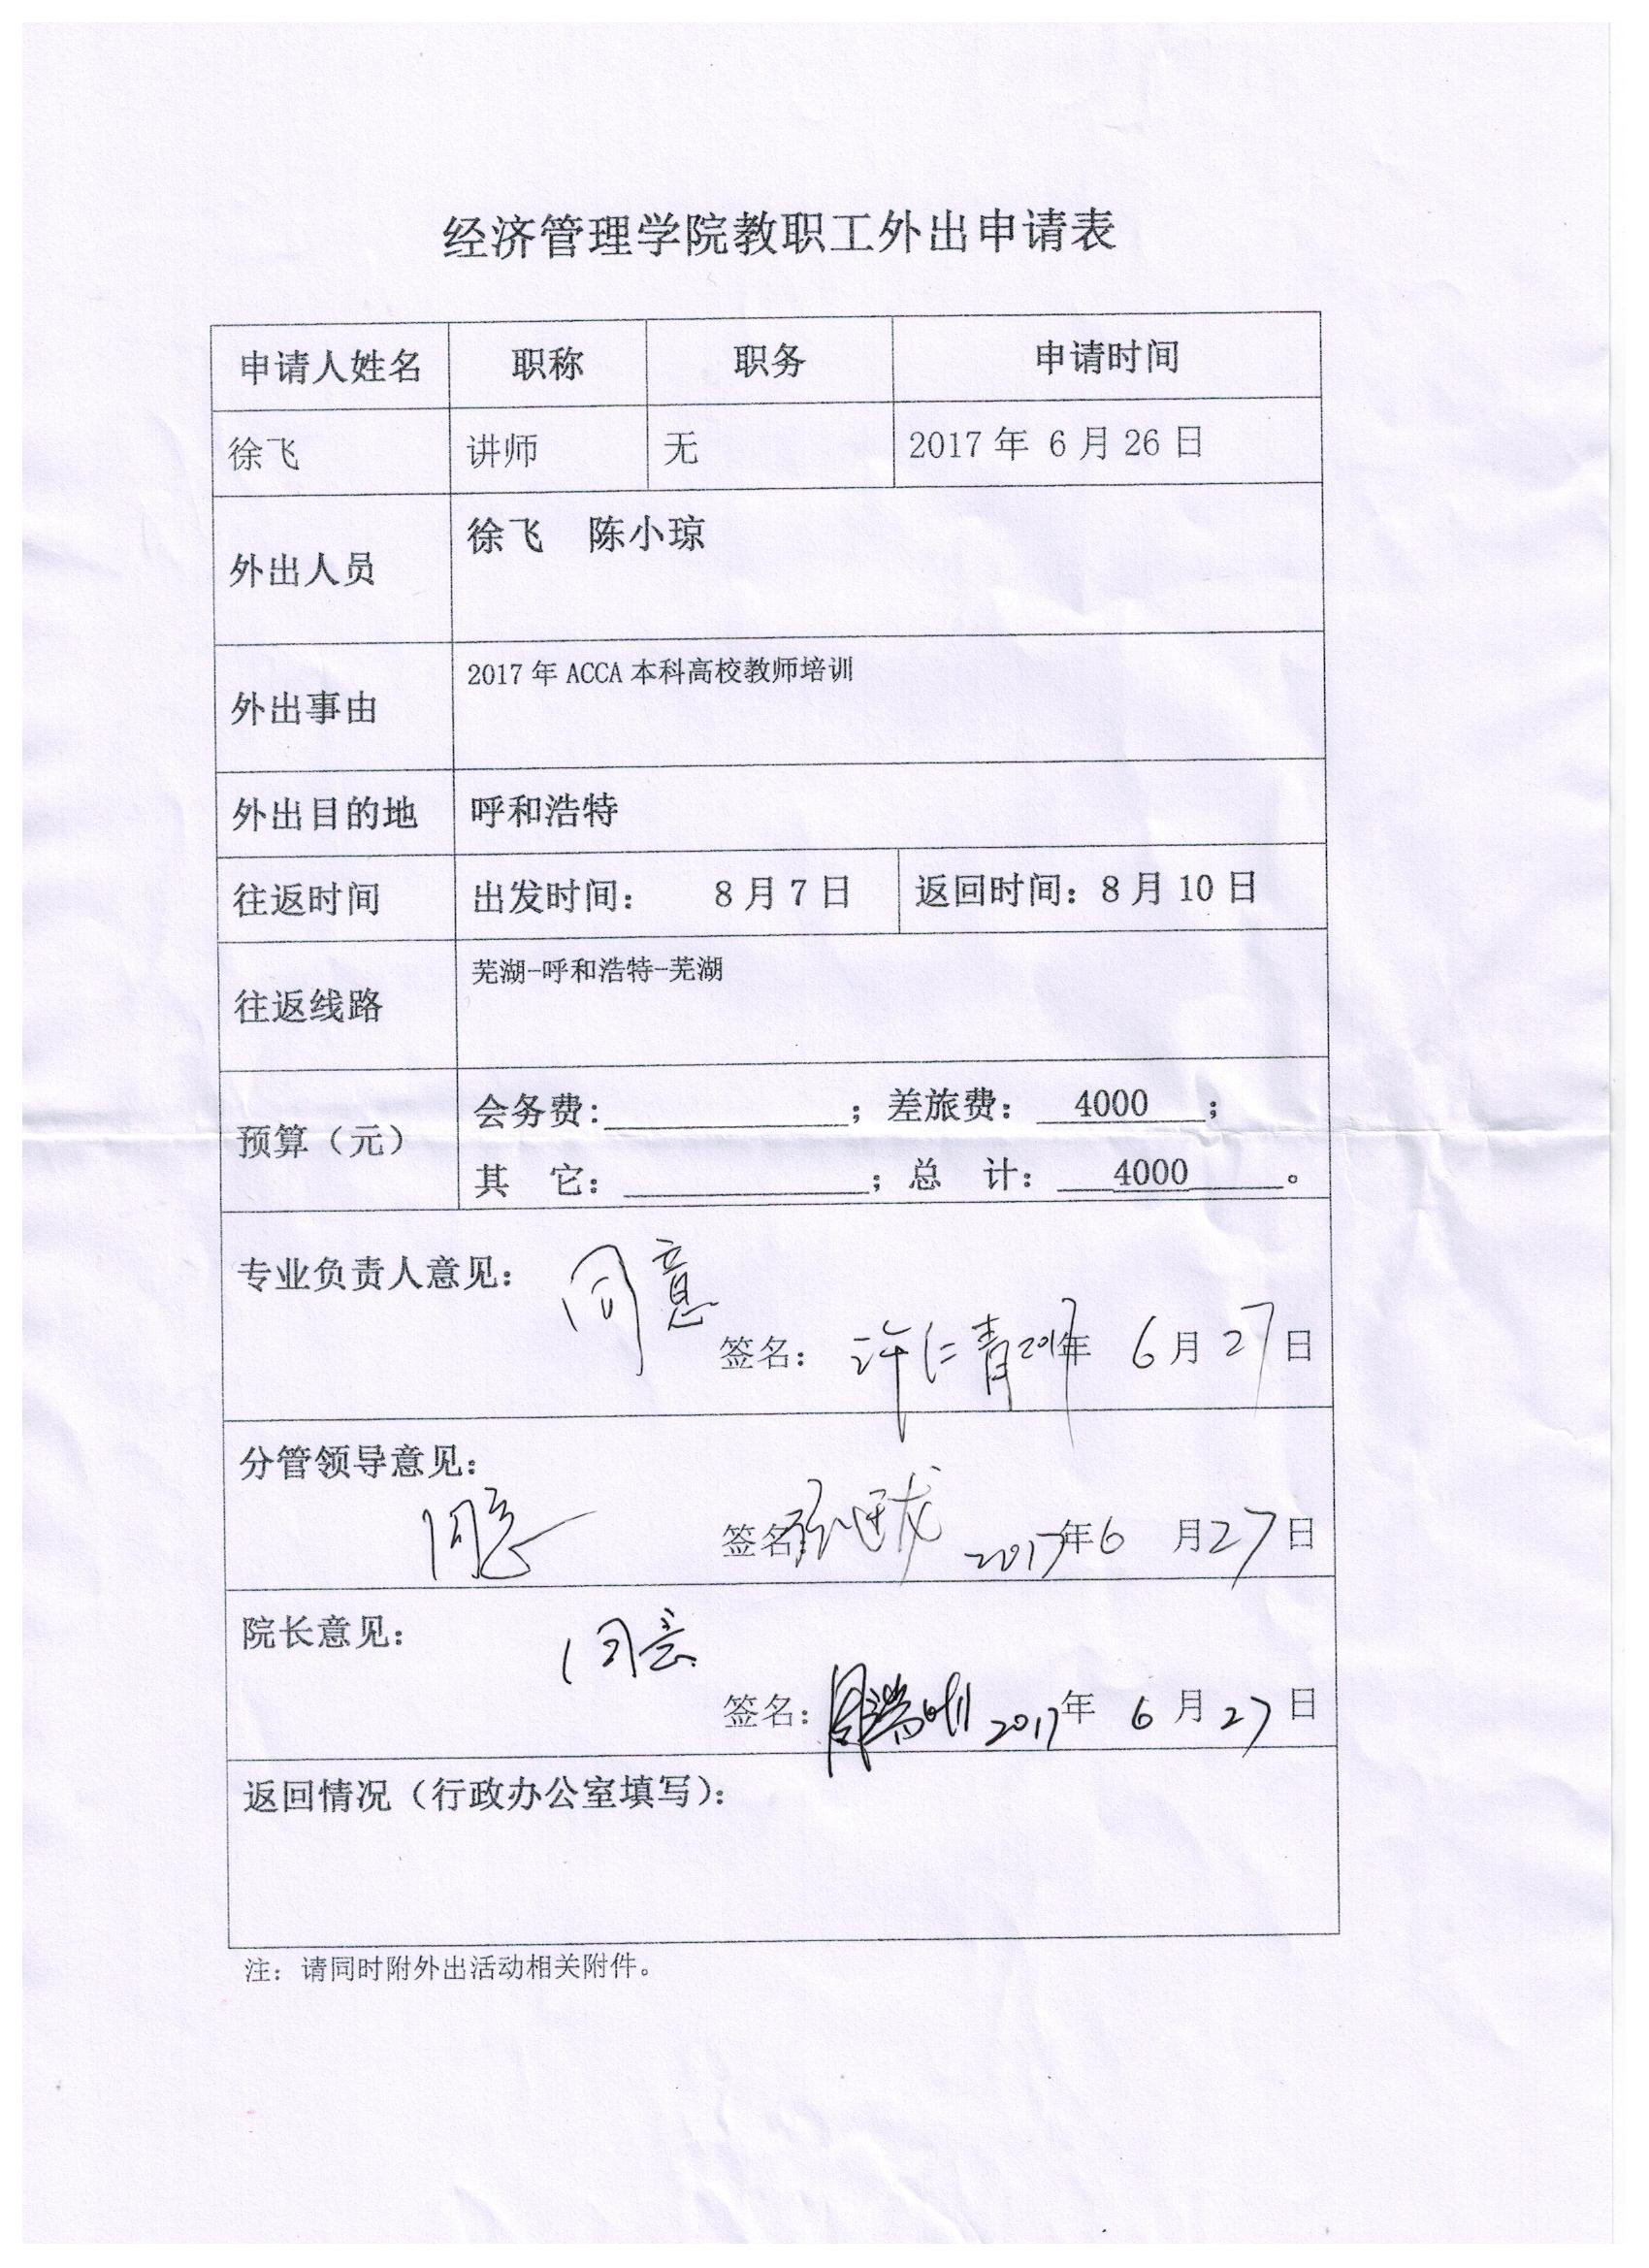 经济管理学院教职工外出申请表
申请人姓名 职称 职务 申请时间
徐飞 讲师 无 2017 年 6 月 26 日
外出人员 徐飞 陈小琼
外出事由 2017 年 ACCA 本科高校教师培训
外出目的地 呼和浩特
往返时间 出发时间： 8 月 7 日 返回时间：8 月 10 日
往返线路 芜湖-呼和浩特-芜湖
预算（元）
会务费：；差旅费： 4000 ；
其 它：；总 计： 4000 。
专业负责人意见： 同意
签名： 许仁青 2017年 6 月 27 日
分管领导意见：
同意 签名： 2017年 6 月 27 日
院长意见： 同意
签名： 2017年 6 月 27 日
返回情况（行政办公室填写）：
注：请同时附外出活动相关附件。